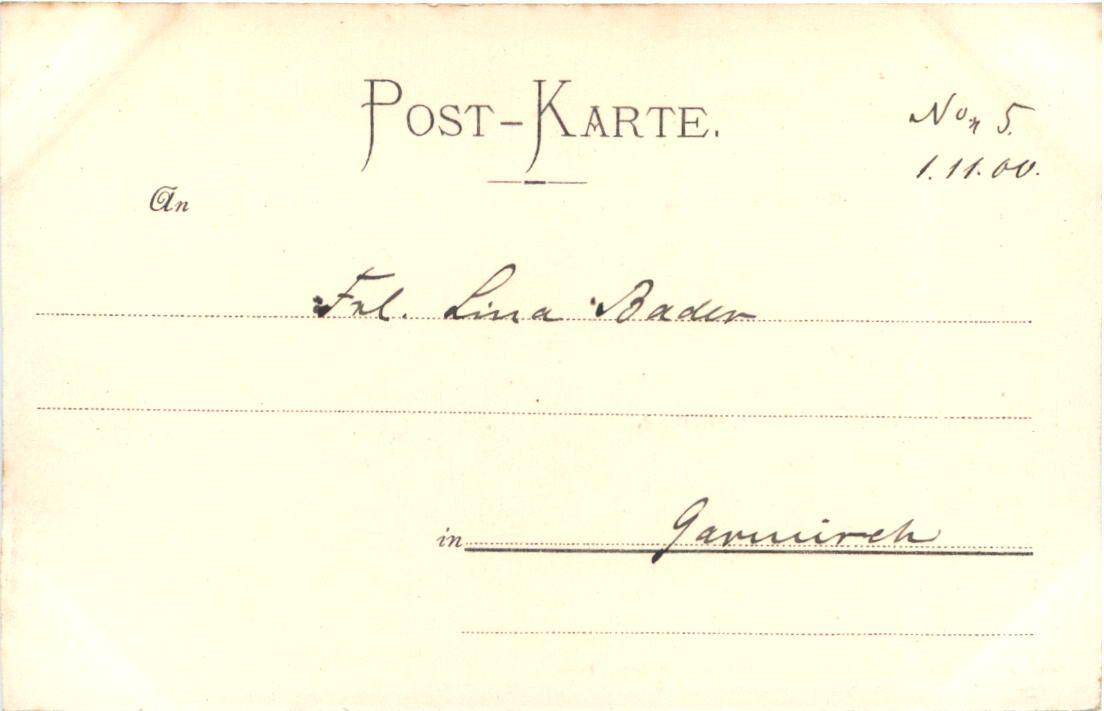 POST-KARTE.
1.11.00.
An
Frl. Lina Bader
in Garmisch